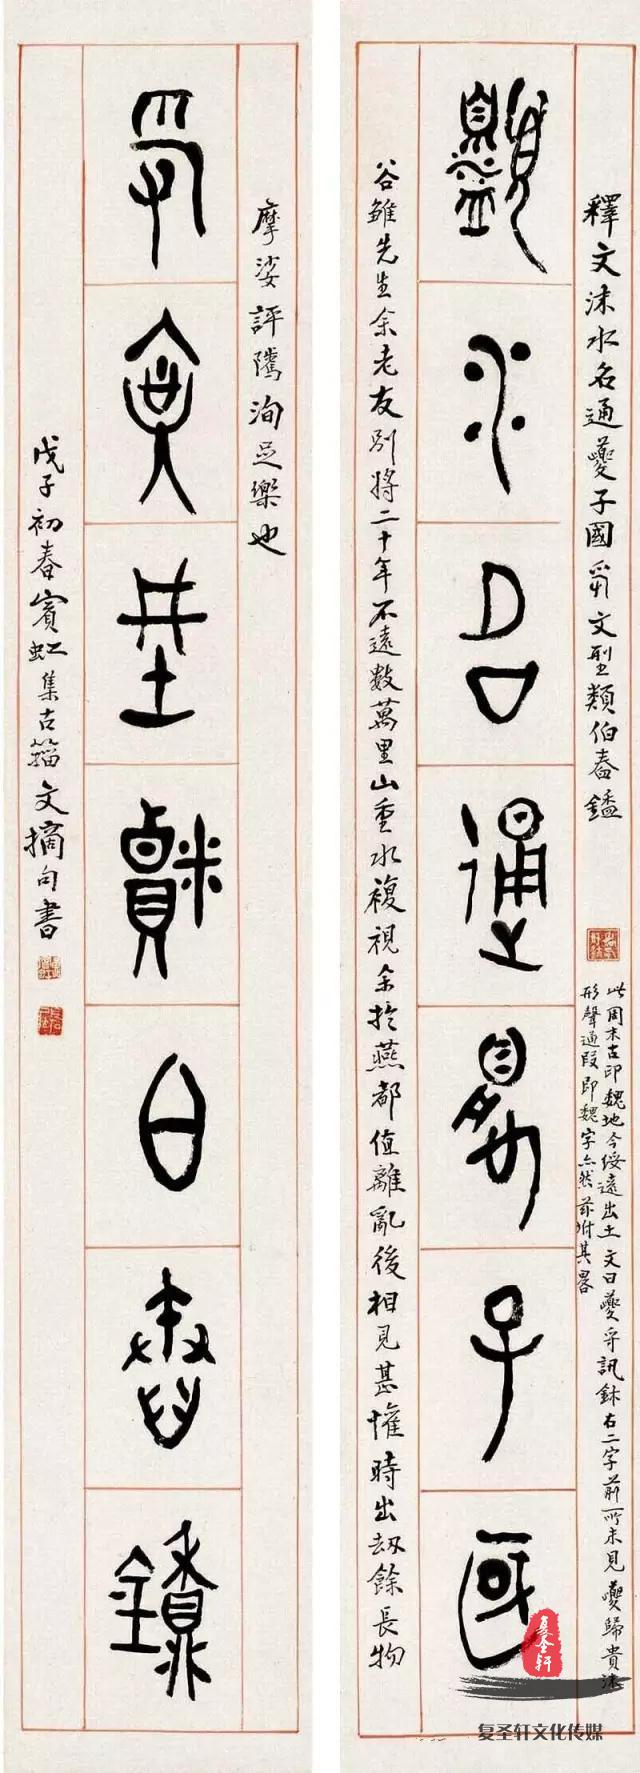 釋文沬水名通夔子國𤔲文型類伯春鑑
沬水名通夔子國
此周末古印魏地今綏遠出土文曰夔𤔲訊鉥右二字前所未見夔歸貴沬
形聲通叚即魏字亦然茲附其畧
谷雛先生余老友別將二十年不遠數萬里山重水複視余於燕都值離亂後相見甚懽時出劫餘長物
文型類白春
摩娑評隲洵足樂也
戊子初春賓虹集古籀文摘句書
复圣轩
复圣轩文化传媒